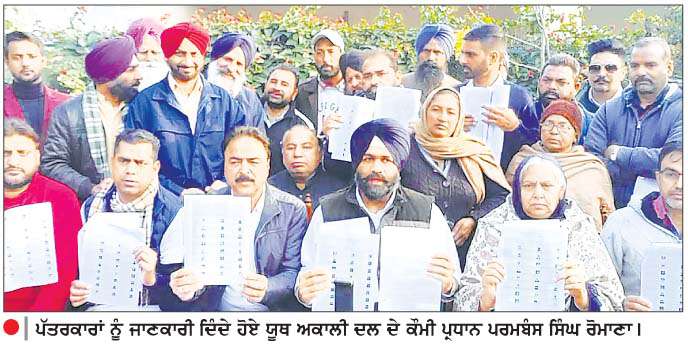 ਪੱਤਰਕਾਰਾਂ ਨੂੰ ਜਾਣਕਾਰੀ ਦਿੰਦੇ ਹੋਏ ਯੂਥ ਅਕਾਲੀ ਦਲ ਦੇ ਕੌਮੀ ਪ੍ਰਧਾਨ ਪਰਮਬੰਸ ਸਿੰਘ ਰੋਮਾਣਾ।